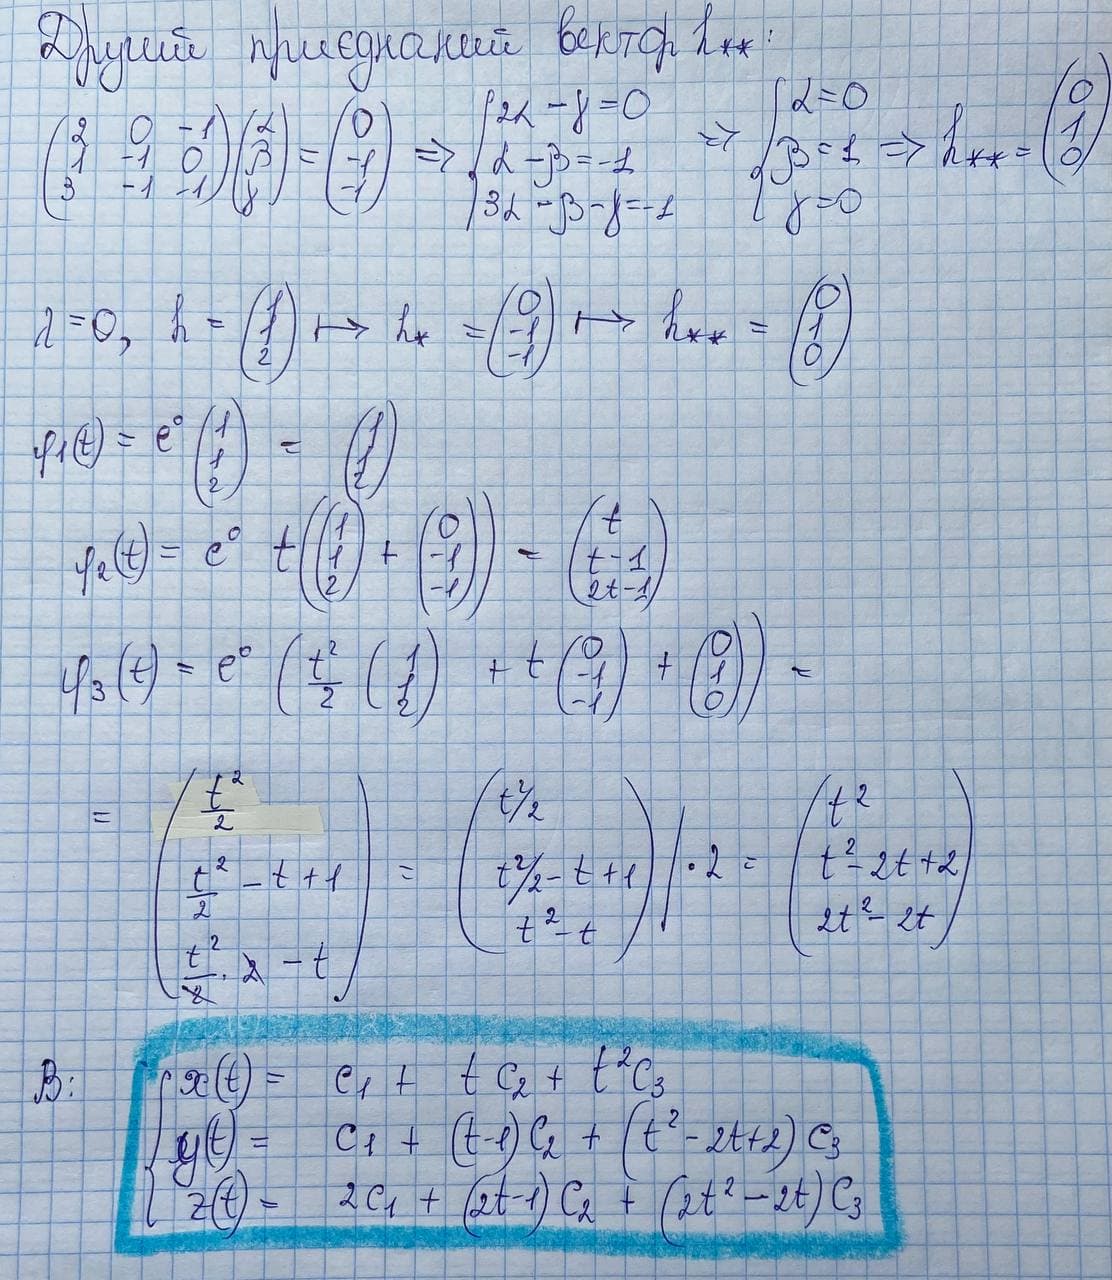 Другий приєднаний вектор h**:
(2 0 -1; 1 -1 0; 3 -1 -1)(α; β; γ) = (0; -1; -1) => {2α - γ = 0; α - β = -1; 3α - β - γ = -1 => {α = 0; β = 1; γ = 0 => h** = (0; 1; 0)
λ = 0, h = (1; 1; 2) ↦ h* = (0; -1; -1) ↦ h** = (0; 1; 0)
φ1(t) = e⁰ (1; 1; 2) = (1; 1; 2)
φ2(t) = e⁰ t((1; 1; 2) + (0; -1; -1)) = (t; t-1; 2t-1)
φ3(t) = e⁰ (t²/2 (1; 1; 2) + t (0; -1; -1) + (0; 1; 0)) =
= (t²/2; t²/2 - t + 1; t²/2 · 2 - t) = (t²/2; t²/2 - t + 1; t² - t) | · 2 = (t²; t² - 2t + 2; 2t² - 2t)
В: {x(t) = c1 + t c2 + t² c3
y(t) = c1 + (t-1) c2 + (t² - 2t + 2) c3
z(t) = 2c1 + (2t-1) c2 + (2t² - 2t) c3